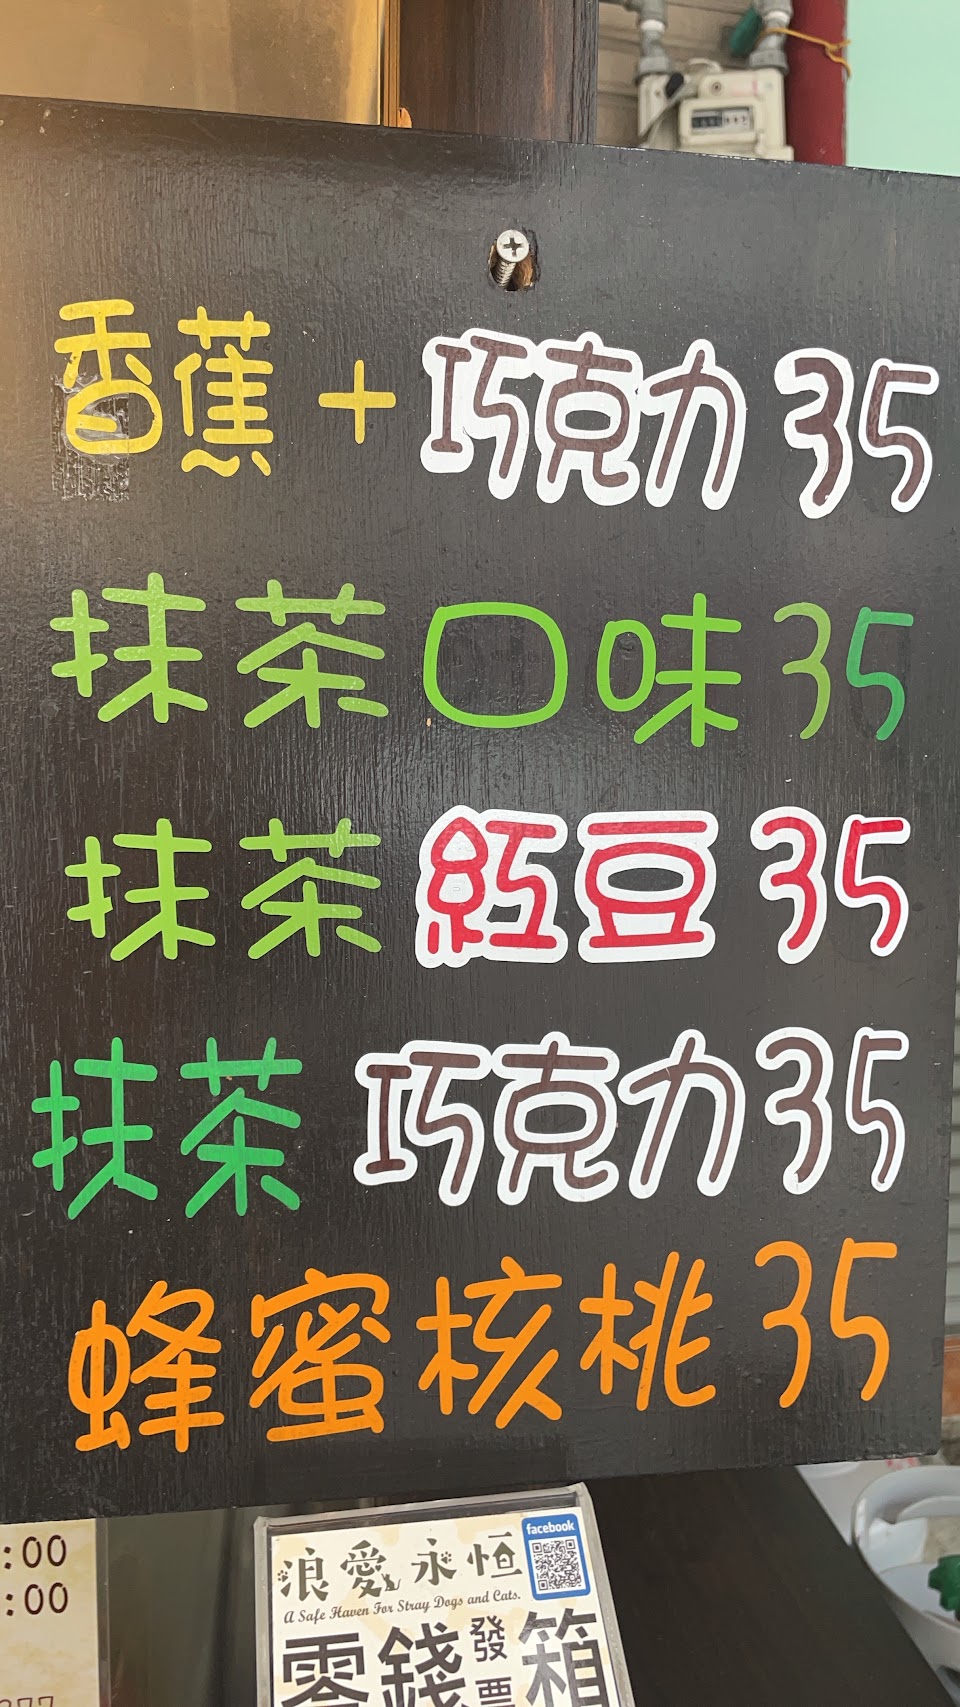 香蕉+巧克力 35
抹茶口味 35
抹茶紅豆 35
抹茶 巧克力 35
蜂蜜核桃 35
:00
:00
facebook
浪愛永恒
A Safe Haven For Stray Dogs and Cats.
零錢發票箱